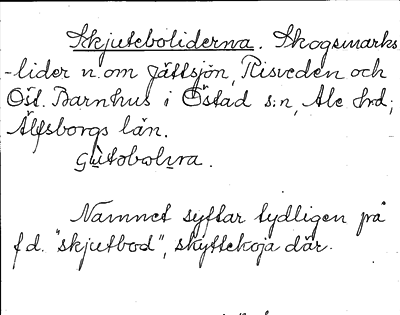 Skjuteboliderna. Skogsmarks
-lider n. om Jättsjön, Risveden och
Öst. Barnhus i Östad s:n, Ale hrd;
Älfsborgs län.
Gu̇tobolı̣ra.
Namnet syftar tydligen på
f.d. "skjutbod", skyttekoja där.